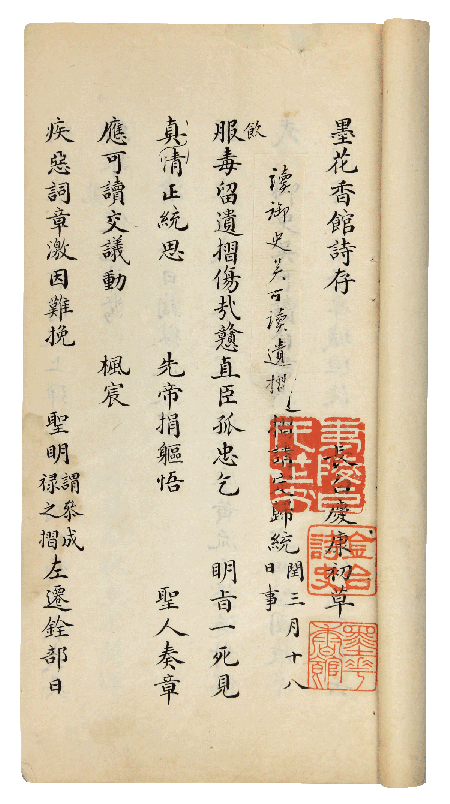 墨花香館詩存 長白慶康初草
讀御史吳可讀遺摺 摺請定歸統 閏三月十八日事
飲
服毒留遺摺傷哉戇直臣孤忠乞 明旨一死見
真清正統思 先帝捐軀悟 聖人奏章
應可讀交議動 楓宸
疾惡詞章激因難挽 聖明 謂參成祿之摺 左遷銓部日
墨花香館